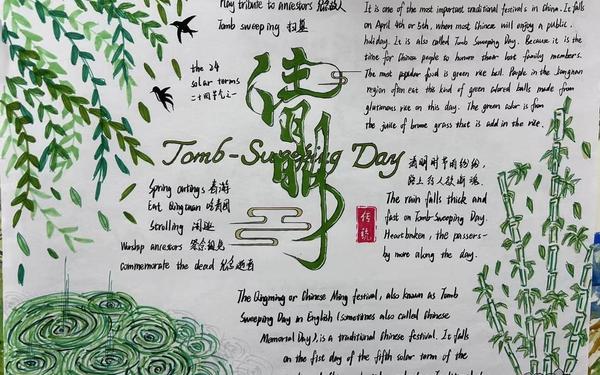 Pay tribute to ancestors
Tomb sweeping 扫墓
the 24
solar terms
二十四节气之一
It is one of the most important traditional festivals in China. It falls
on April 4th or 5th, when most Chinese will enjoy a public
holiday. It is also called Tomb Sweeping Day. Because it is the
time for Chinese people to honour their lost family members.
The most popular food is green rice ball. People in the Jiangnan
region often eat this kind of green colored balls made from
glutanous rice on this day. The green color is from
the juice of brome grass that is add in the rice.
清明
Tomb-Sweeping Day
Spring outings 春游
Eat Qingtuan 吃青团
Strolling 闲逛
Worship ancestors
commemorate the dead
传统
清明时节雨纷纷,
路上行人欲断魂.
The rain falls thick and
fast on Tomb-sweeping Day.
Heartbroken, the passers-
by move along the day.
The Qingming or Chinese Ming festival, also known as Tomb
Sweeping Day in English (sometimes also called Chinese
Memorial Day), is a traditional Chinese festival. It falls
on the fist day of the fifth solar term of the